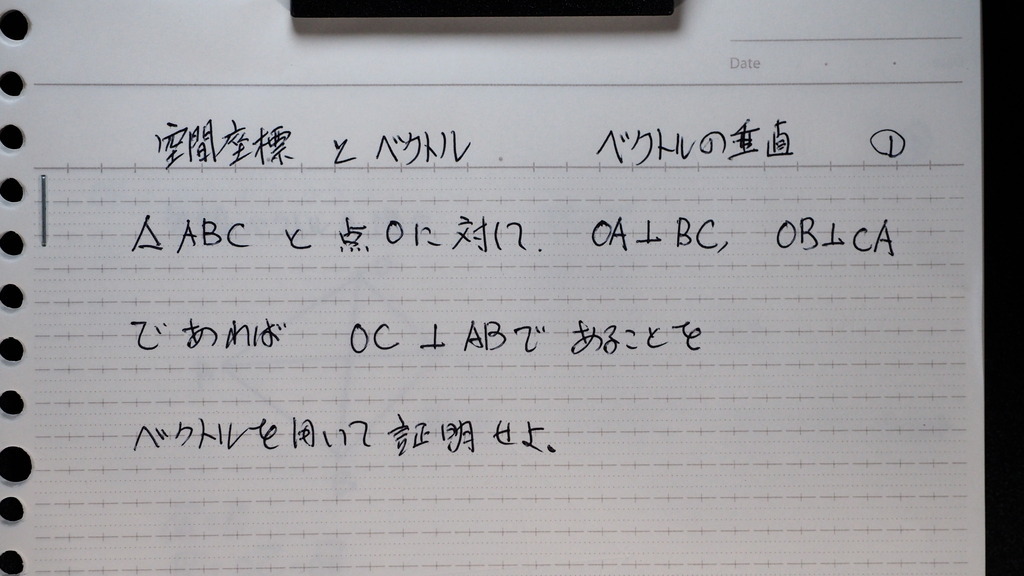 Date
空間座標 と ベクトル ベクトルの垂直 ①
△ABC と 点Oに対して. OA⊥BC, OB⊥CA
であれば OC⊥ABで あることを
ベクトルを用いて 証明せよ。